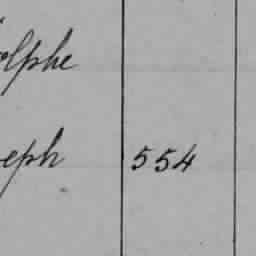 olphe
eph 554